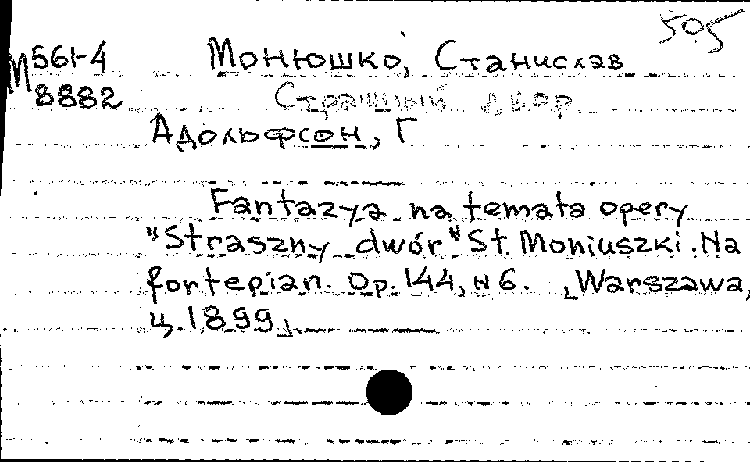 505
М 561-4 Монюшко, Станислав
8882 Страшный двор
Адольфсон, Г
Fantazya na temata opery
"Straszny dwór" St. Moniuszki. Na
fortepian. Op. 144, № 6. [Warszawa,
ц. 1899].